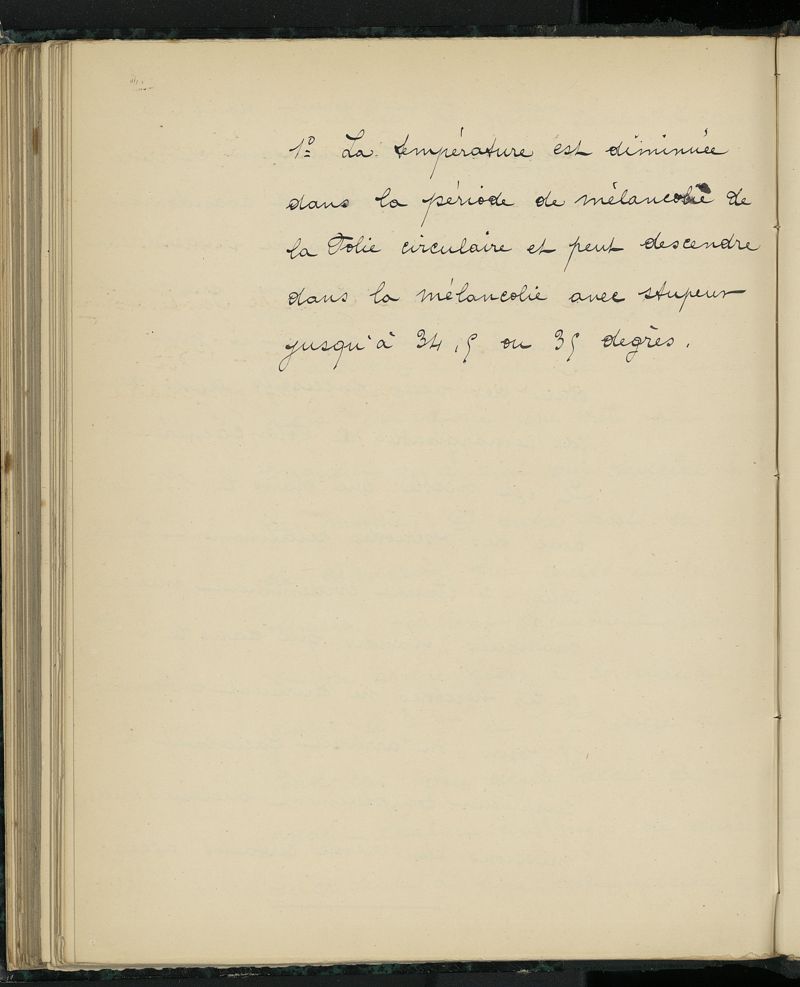 1º La température est diminuée
dans la période de mélancolie de
la Folie circulaire et peut descendre
dans la mélancolie avec stupeur
jusqu'à 34,5 ou 35 degrès.